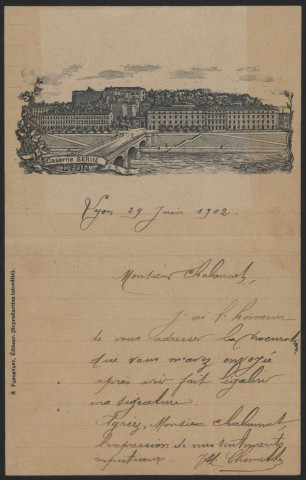 Caserne SERIN
LYON
Lyon 29 Juin 1902.
Monsieur Chalumet,
J'ai l'honneur
de vous adresser la procuration
que vous m'avez envoyée
après avoir fait légaliser
ma signature.
Agréez, Monsieur Chalumet,
l'expression de mes sentiments
respectueux.
Éditeur. (Reproduction interdite).